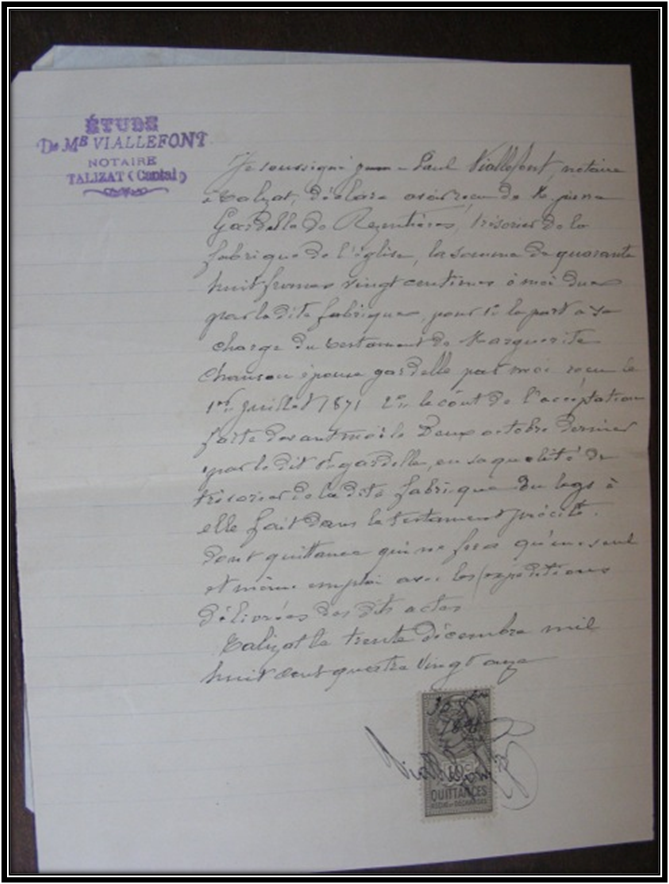 ÉTUDE
De Me VIALLEFONT
NOTAIRE
TALIZAT (Cantal)
Je soussigné Paul Viallefont, notaire
à Talizat, déclare avoir reçu de Mr pierre
Gardelle de Rezentières, trésorier de la
fabrique de l'église, la somme de quarante
huit francs vingt centimes à moi dus
par la dite fabrique, pour 1o la part à sa
charge du testament de Marguerite
Chanson épouse gardelle par moi reçu le
1er Juillet 1871 2o le coût de l'acceptation
faite devant moi le Deux octobre dernier
par le dit Sr gardelle, en sa qualité de
trésorier de la dite fabrique du legs à
elle fait dans le testament précité.
dont quittance qui ne fera qu'un seul
et même emploi avec les expéditions
délivrées des dits actes
Talizat le trente décembre mil
huit cent quatre vingt onze
Viallefont
QUITTANCES
REÇUS ET DÉCHARGES